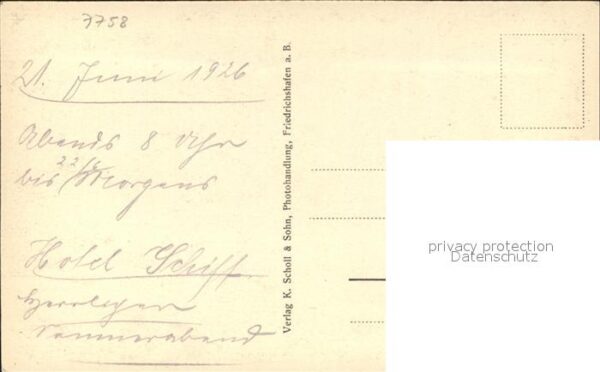 7758
21. Juni 1926
Abends 8 Uhr
bis 22/6 Morgens
Hotel Schiff
Herrlicher
Sommerabend
Verlag K. Scholl & Sohn, Photohandlung, Friedrichshafen a. B.
privacy protection
Datenschutz